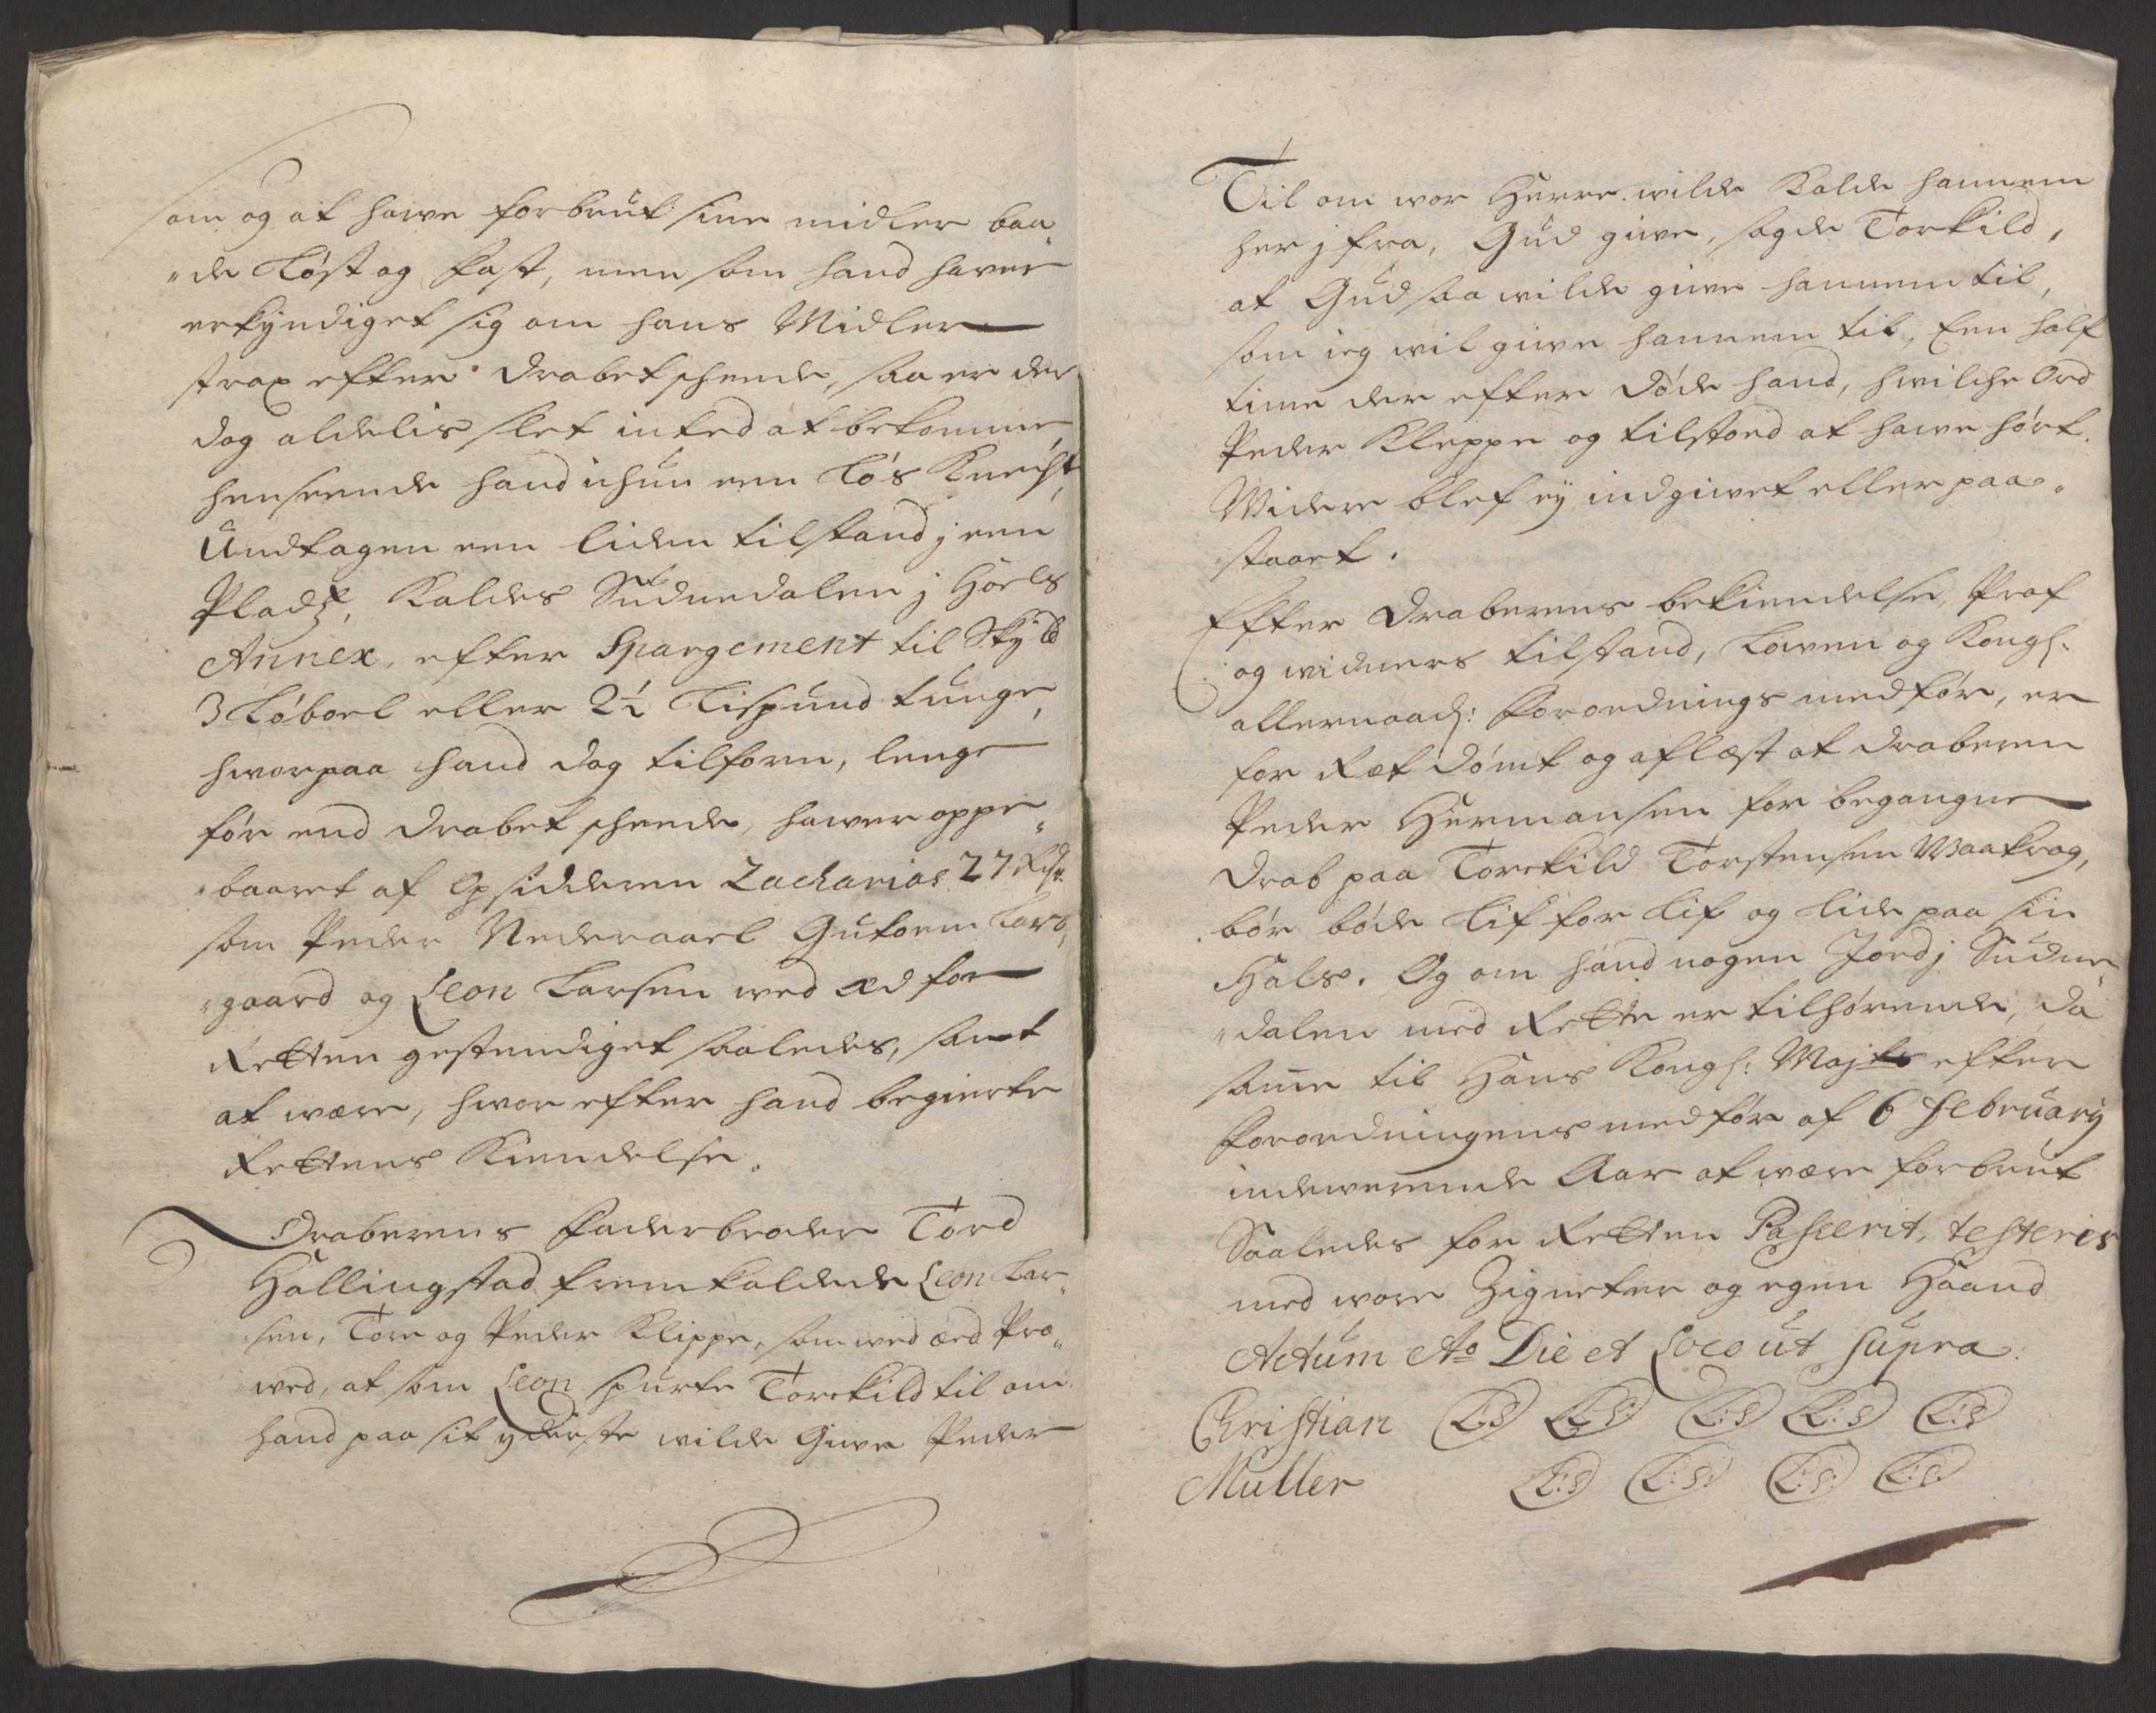 som og at hawe forbrut sine midler baa„
„de Løst og fast, men som hand hawer
erkyndiget sig om hans Midler
strax efter drabet scheede, saa er der
dog aldelis slet inted at bekomme,
henseende hand ichun een Løs Knecht,
Undtagen een liden tilstand j een
Pladz, Kaldes Sudnedalen j Hoels
Annex, efter Spargement til Skyld
3 Løboel eller 2½ Lispund tunge,
hworpaa hand dog tilforn, lenge
før end drabet scheede, hawer oppe„
„baaret af Opsidderen Zacharias 27 Rdr
som Peder Nederaael Gutorm
„gaard og Leon Larsen wed æd for
Retten gestendiget saaledes, samt
at wære, hwor efter hand begierte
Rettens Kiendelse.
Draberens Faderbroder Tord
Hallingstad fremkaldede Leon Lar„
„sen, Tore og Peder Klippe, som wed æed Prø„
„wed, at som Leon spurte Torckild til om
hand paa sit yderste wilde Giwe Peder
Til om wor Herre wilde Kalde hannem
her j fra, Gud giwe, sagde Torkild,
at Gud saa wilde giwe hannem til,
som ieg wil giwe hannem til, Een half
time der efter døde hand, hwilche Ord
Peder Kleppe og tilstoed at hawe hørt.
Widere blef ey indgiwet eller paa„
staaet.
Efter Draberens bekiendelse, Prof
og widners tilstand, Lowen og Kongl:
allernaad: forordnings medfør, er
for Ræt dømt og aflæst at draberen
Peder Hermansen for begangne
Drab paa Torckild Torstensen Waakrog,
bør bøde Lif for Lif og lide paa sin
Hals. Og om hand nogen Jord j Sudne„
„dalen med Rette er tilhørende, da
samme til Hans Kongl: Majts efter
forordningens medfør af 6 February
indewerende Aar at wære forbrut
Saaledes for Retten Passerit, testeris
med wore Zigneter og egen Haand
Actum Ao Die et Loco ut supra:
Christian L:S L:S: L:S L:S L:S
Muller L:S L:S: L:S: L:S: